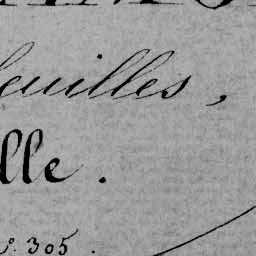 euilles,
lle.
N.º 305.